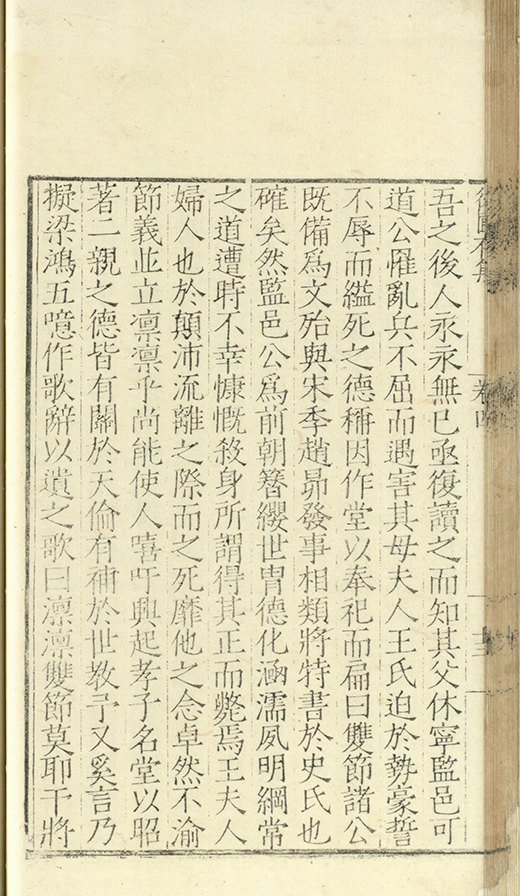 卷四
吾之後人永永無已亟復讀之而知其父休寧監邑可
道公罹亂兵不屈而遇害其母夫人王氏迫於勢豪誓
不辱而繼死之德稱因作堂以奉祀而扁曰雙節諸公
既備爲文殆與宋季趙昴發事相類將特書於史氏也
確矣然監邑公爲前朝簪纓世胄德化涵濡夙明綱常
之道遭時不幸慷慨殺身所謂得其正而斃焉王夫人
婦人也於顛沛流離之際而之死靡他之念卓然不渝
節義並立凛凛乎尚能使人嘻吁興起孝子名堂以昭
著二親之德皆有關於天倫有補於世教予又奚言乃
擬梁鴻五噫作歌辭以遺之歌曰凛凛雙節莫耶干將